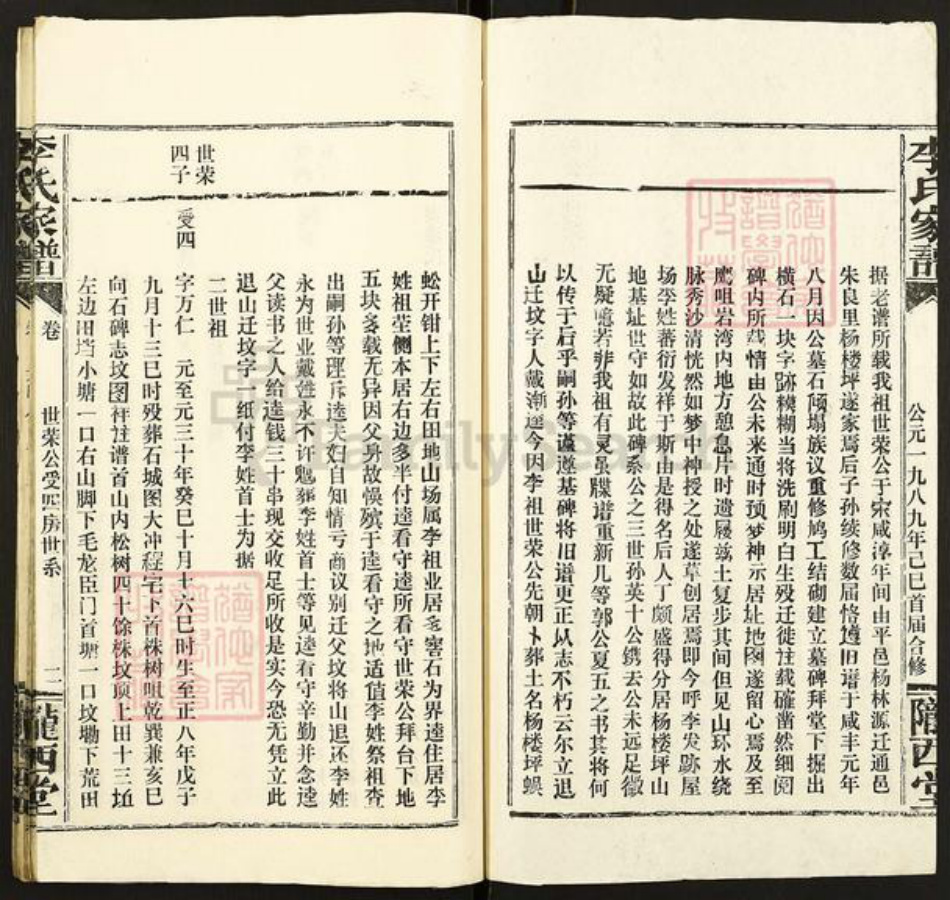 李氏家谱
公元一九八九年己巳首届合修
陇西堂
据老谱所载我祖世荣公于宋咸淳年间由平邑杨林源迁通邑
朱良里杨楼坪遂家焉后子孙续修数届恪遵旧谱于咸丰元年
八月因公墓石倾塌族议重修鸠工结砌建立墓碑拜堂下掘出
横石一块字跡模糊当将洗刷明白生殁迁徙注载确凿然细阅
碑内所载情由公未来通时预梦神示居址地图遂留心焉及至
鹰咀岩湾内地方憩息片时遗屦兹土复步其间但见山环水绕
脉秀沙清恍然如梦中神授之处遂草创居焉即今呼李发跡屋
场李姓蕃衍发祥于斯由是得名后人丁颇盛得分居杨楼坪山
地基址世守如故此碑系公之三世孙英十公镌去公未远足徵
无疑噫若非我祖有灵虽牒谱重新几等郭公夏五之书其将何
以传于后乎嗣孙等谨遵基碑将旧谱更正以志不朽云尔立退
山迁坟字人戴渐逵今因李祖世荣公先朝卜葬土名杨楼坪蜈
蚣开钳上下左右田地山场属李祖业居窖石为界逵住居李
姓祖茔侧本居右边多半付逵看守逵所看守世荣公拜台下地
五块多载无异因父身故悮殡于逵看守之地适值李姓祭祖查
出嗣孙等理斥逵夫妇自知情亏商议别迁父坟将山退还李姓
永为世业戴姓永不许魆葬李姓首士等见逵看守辛勤并念逵
父读书之人给逵钱三十串现交收足所收是实今恐无凭立此
退山迁坟字一纸付李姓首士为据
二世祖
世荣
四子
受四
字万仁 元至元三十年癸巳十月十六巳时生至正八年戊子
九月十三巳时殁葬石城图大冲程宅下首株树咀乾巽兼亥巳
向石碑志坟图祥注谱首山内松树四十馀株坟顶上田十三坵
左边田垱小塘一口右山脚下毛龙臣门首塘一口坟塝下荒田
李氏家谱
卷
世荣公受四房世系
二
陇西堂